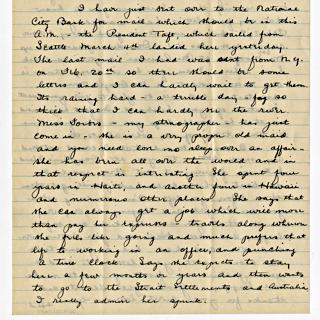 I have just sent over to the National
City Bank for mail which should be in this
A.M. - the President Taft, which sailed from
Seattle March 4th landed here yesterday.
The last mail I had was sent from N.Y.
on Feb. 20th so there should be some
letters and I can hardly wait to get them.
It's raining hard - a terrible day, fog so
thick that I can hardly see the river.
Miss - my stenographer - has just
come in - she is a very proper old maid
and you need lose no sleep over an affair -
she has been all over the world and in
that respect is interesting. She spent four
years in Haiti, and another four in Hawaii
and numerous other places. She says that
she can always get a job which will more
than pay her expenses - travels along when
she feels like going and much prefers that
life to working in an office, and punching
a time clock. Says she expects to stay
here a few months or years and then wants
to go to the Strait Settlements and Australia.
I really admire her spunk.